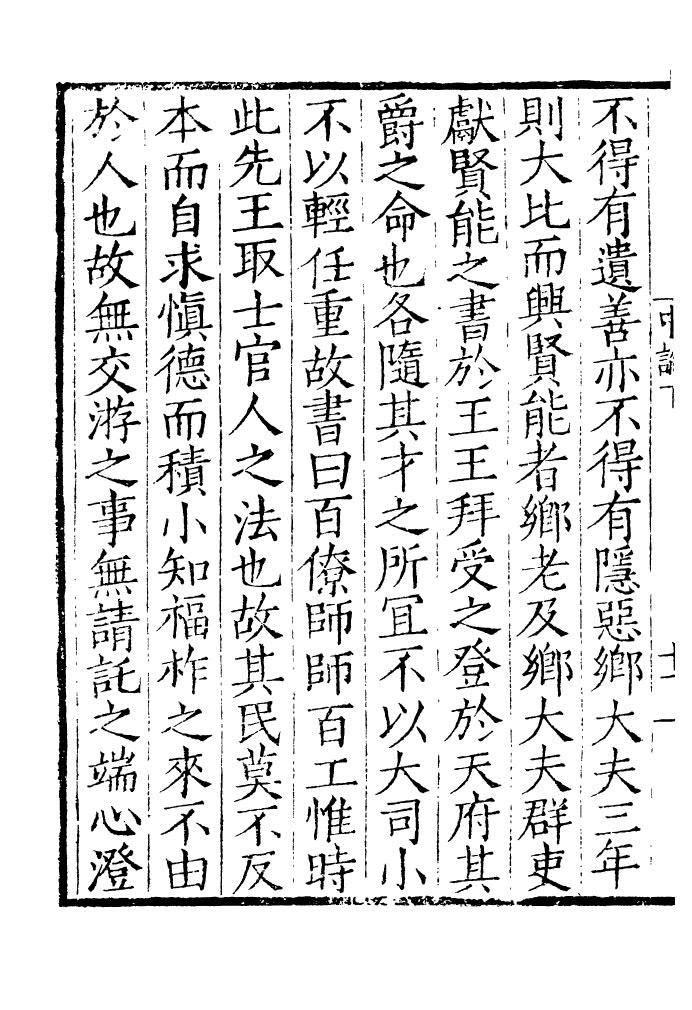 不得有遺善亦不得有隱惡鄉大夫三年
則大比而興賢能者鄉老及鄉大夫群吏
獻賢能之書於王王拜受之登於天府其
爵之命也各隨其才之所冝不以大司小
不以輕任重故書曰百僚師師百工惟時
此先王取士官人之法也故其民莫不反
本而自求慎德而積小知福祚之來不由
於人也故無交游之事無請託之端心澄